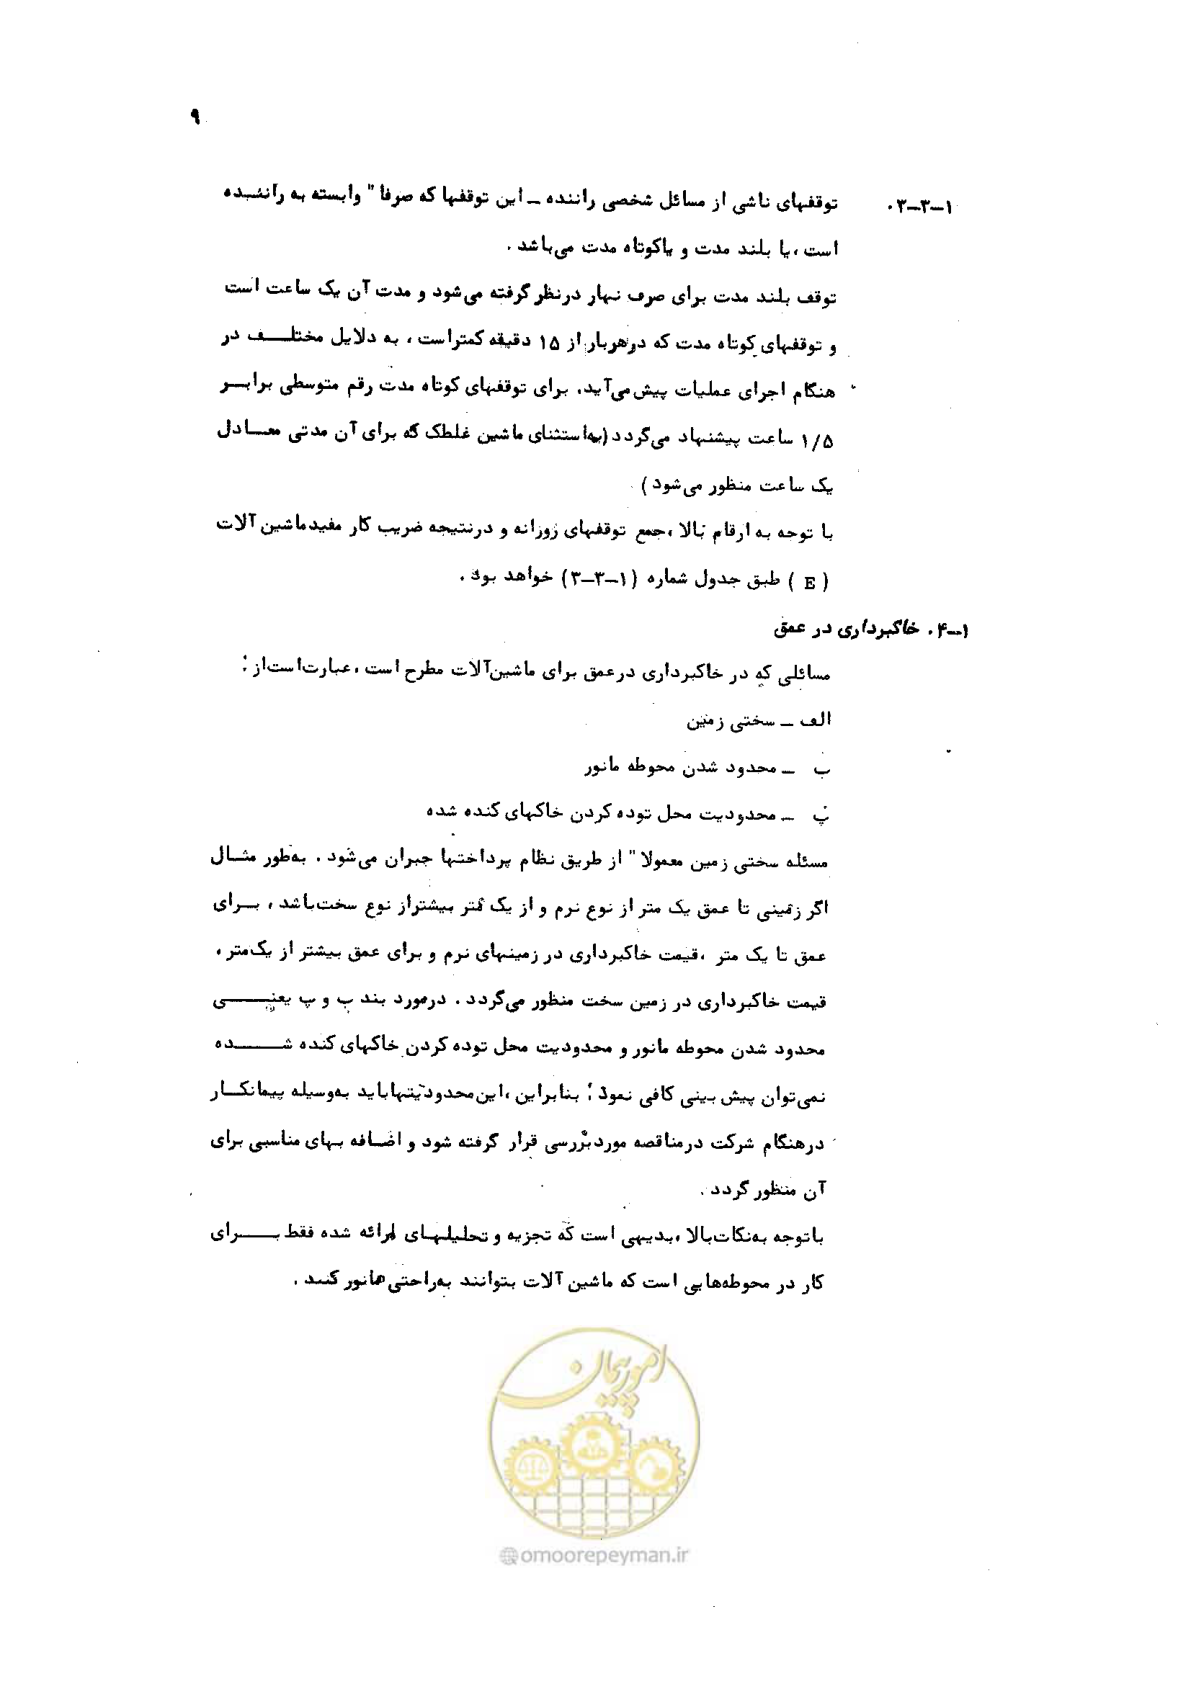 ۹
۱-۳-۳. توقفهای ناشی از مسائل شخصی راننده ــ این توقفها که صرفا" وابسته به راننده
است ، یا بلند مدت و یاکوتاه مدت می‌باشد .
توقف بلند مدت برای صرف نهار درنظر گرفته می‌شود و مدت آن یک ساعت است
و توقفهای کوتاه مدت که درهربار از ۱۵ دقیقه کمتراست ، به دلایل مختلف در
هنگام اجرای عملیات پیش‌می‌آید. برای توقفهای کوتاه مدت رقم متوسطی برابر
۱/۵ ساعت پیشنهاد می‌گردد (به‌استثنای ماشین غلطک که برای آن مدتی معادل
یک ساعت منظور می‌شود )
با توجه به ارقام بالا ،جمع توقفهای روزانه و درنتیجه ضریب کار مفیدماشین آلات
( E ) طبق جدول شماره (۱-۳-۳) خواهد بود .
۱-۴. خاکبرداری در عمق
مسائلی که در خاکبرداری درعمق برای ماشین‌آلات مطرح است ، عبارت‌است‌از :
الف ــ سختی زمین
ب ــ محدود شدن محوطه مانور
پ ــ محدودیت محل توده کردن خاکهای کنده شده
مسئله سختی زمین معمولا" از طریق نظام پرداختها جبران می‌شود . به‌طور مثال
اگر زمینی تا عمق یک متر از نوع نرم و از یک متر بیشتراز نوع سخت‌باشد ، برای
عمق تا یک متر ،قیمت خاکبرداری در زمینهای نرم و برای عمق بیشتر از یک‌متر ،
قیمت خاکبرداری در زمین سخت منظور می‌گردد . درمورد بند ب و پ یعنی
محدود شدن محوطه مانور و محدودیت محل توده کردن خاکهای کنده شده
نمی‌توان پیش بینی کافی نمود ؛ بنابراین ،این‌محدودیتهاباید به‌وسیله پیمانکار
درهنگام شرکت درمناقصه موردبررسی قرار گرفته شود و اضافه بهای مناسبی برای
آن منظور گردد .
باتوجه به‌نکات‌بالا ،بدیهی است که تجزیه و تحلیلهای ارائه شده فقط برای
کار در محوطه‌هایی است که ماشین آلات بتوانند به‌راحتی مانور کنند .
امور پیمان
@omoorepeyman.ir